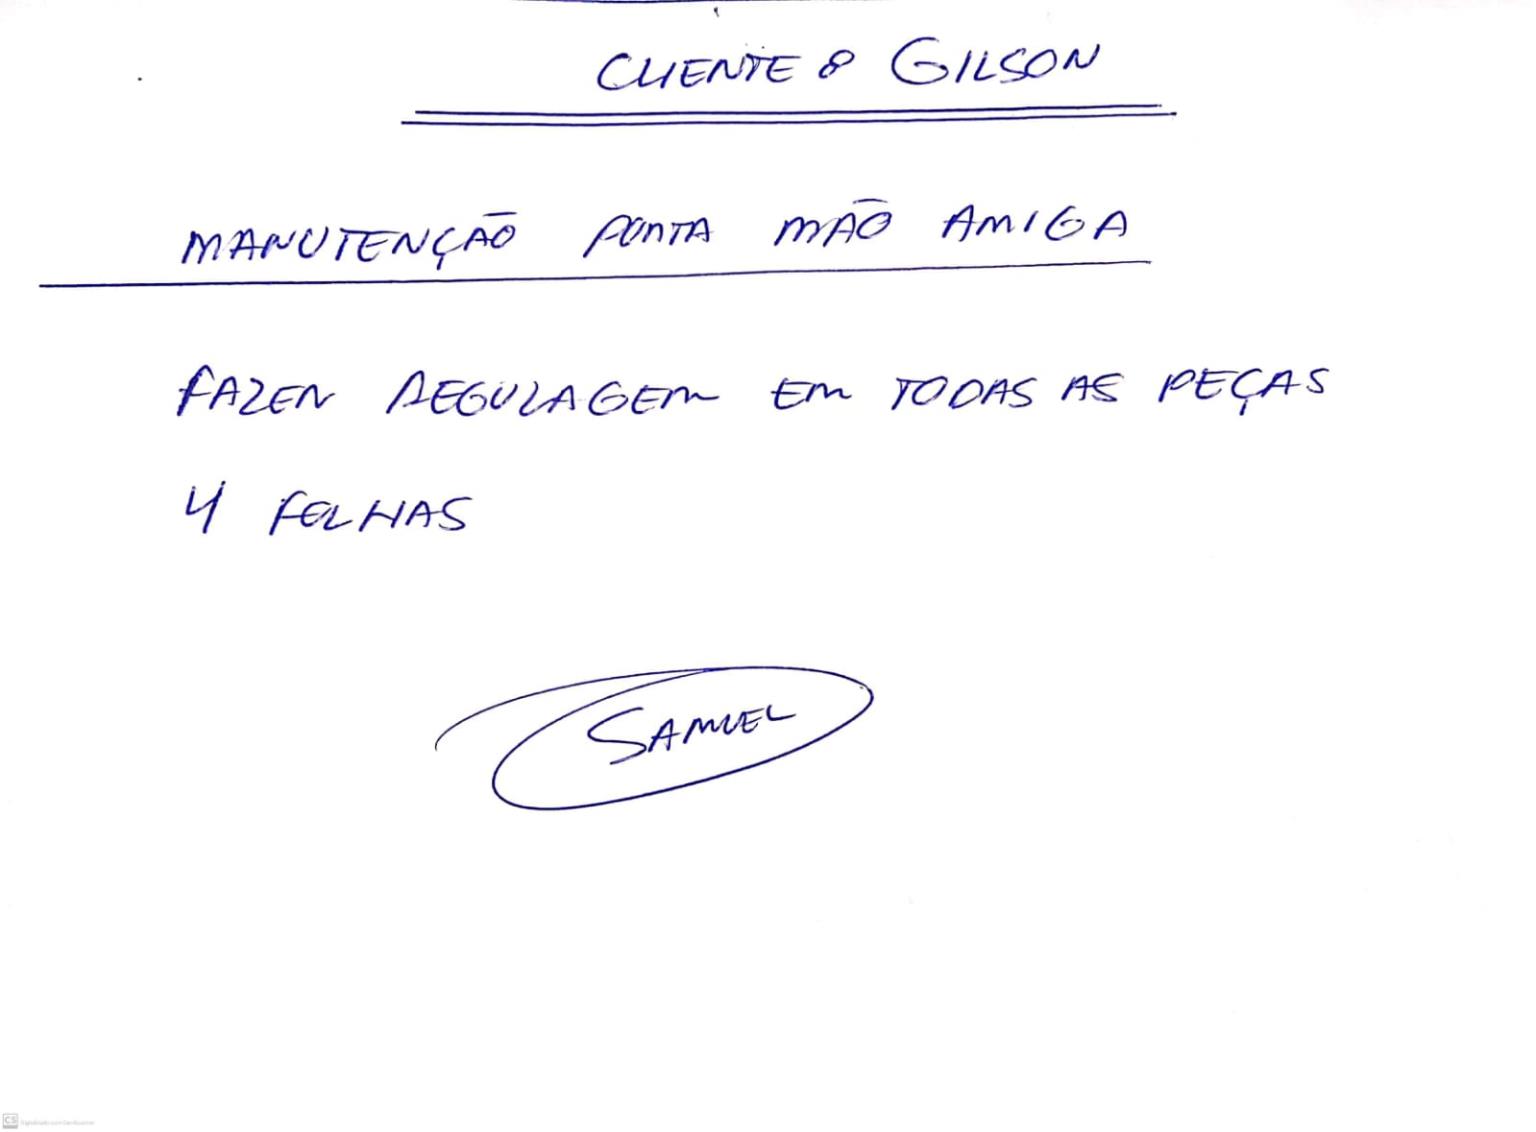 CLIENTE : GILSON
MANUTENÇÃO PORTA MÃO AMIGA
FAZER REGULAGEM EM TODAS AS PEÇAS
4 FOLHAS
SAMUEL
CS Digitalizado com CamScanner